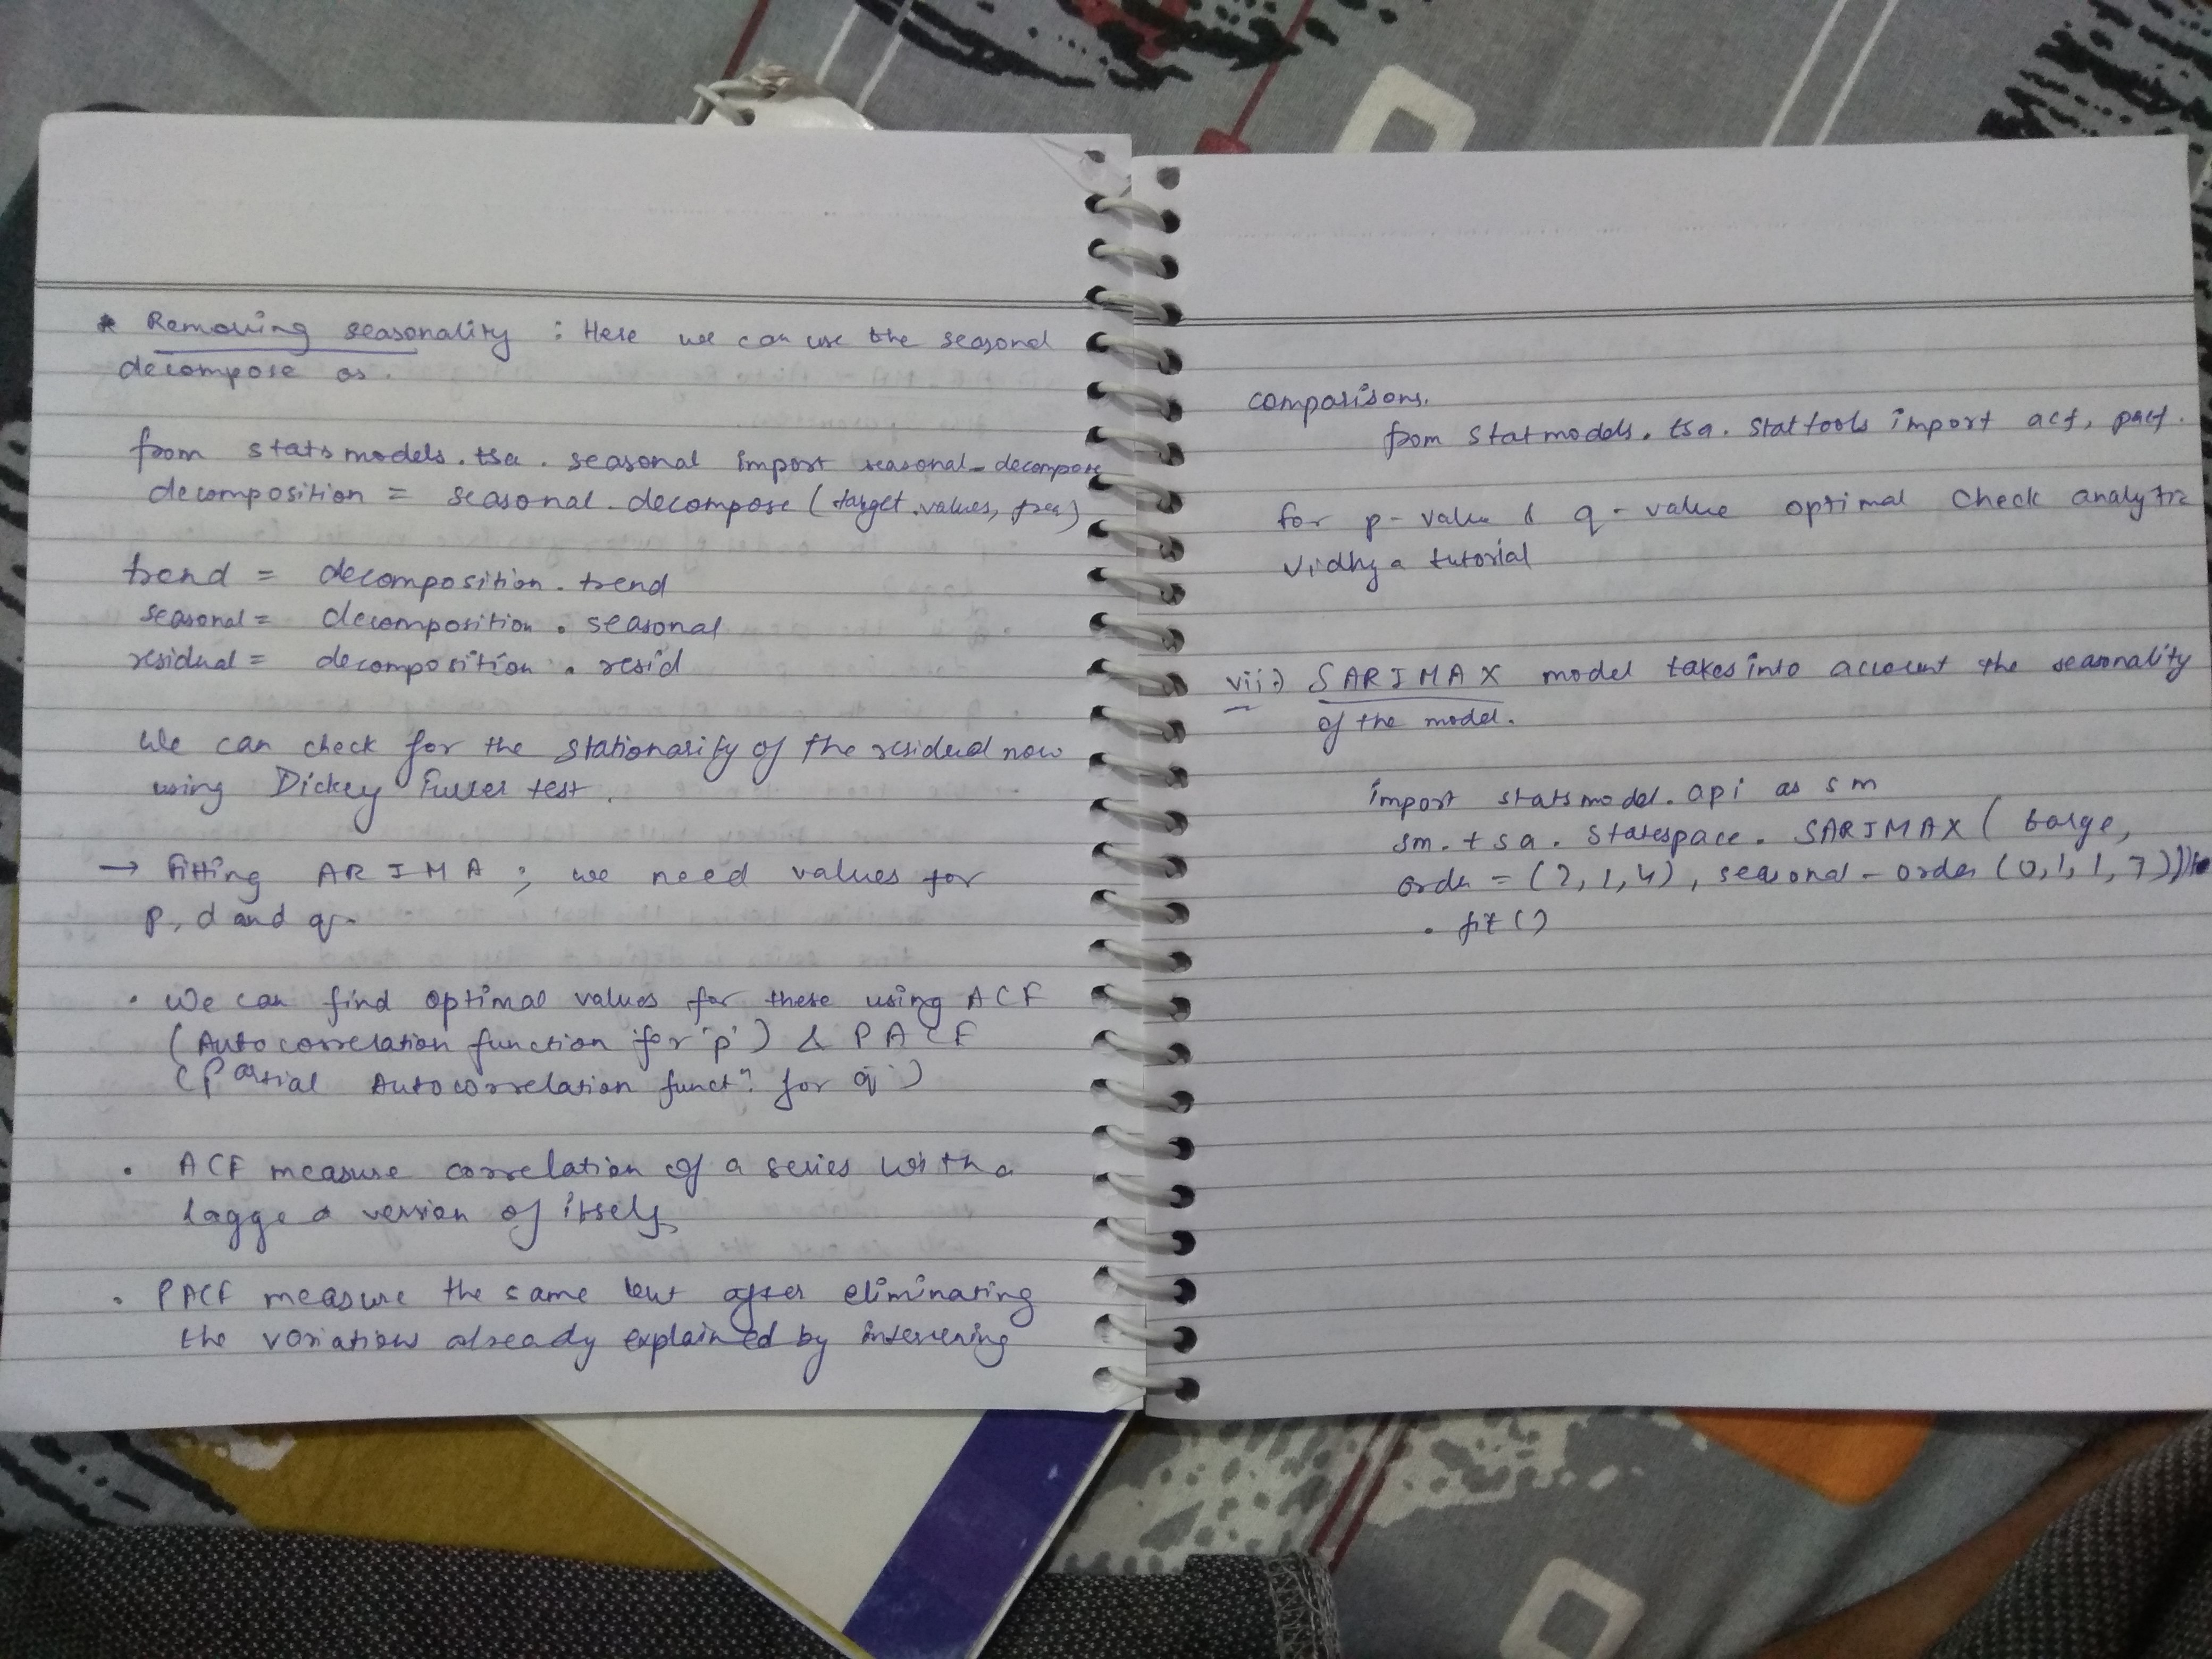 * Removing seasonality : Here we can use the seasonal
decompose as.
from statsmodels.tsa.seasonal import seasonal_decompose
decomposition = seasonal_decompose (target.values, freq)
trend = decomposition.trend
seasonal = decomposition.seasonal
residual = decomposition.resid
We can check for the stationarity of the residual now
using Dickey Fuller test.
→ Fitting ARIMA ; we need values for
p, d and q.
• We can find optimal values for these using ACF
(Autocorrelation function for 'p') & PACF
(Partial Autocorrelation functn. for q')
• ACF measure correlation of a series with a
lagged version of itself
• PACF measure the same but after eliminating
the variations already explained by intervening
comparisons.
from statmodels.tsa.stattools import acf, pacf.
for p-value & q-value optimal check analytic
vidhya tutorial
vii) SARIMAX model takes into account the seasonality
of the model.
import statsmodel.api as sm
sm.tsa.statespace.SARIMAX ( targe,
order = (2,1,4), seasonal-order (0,1,1,7))
.fit()